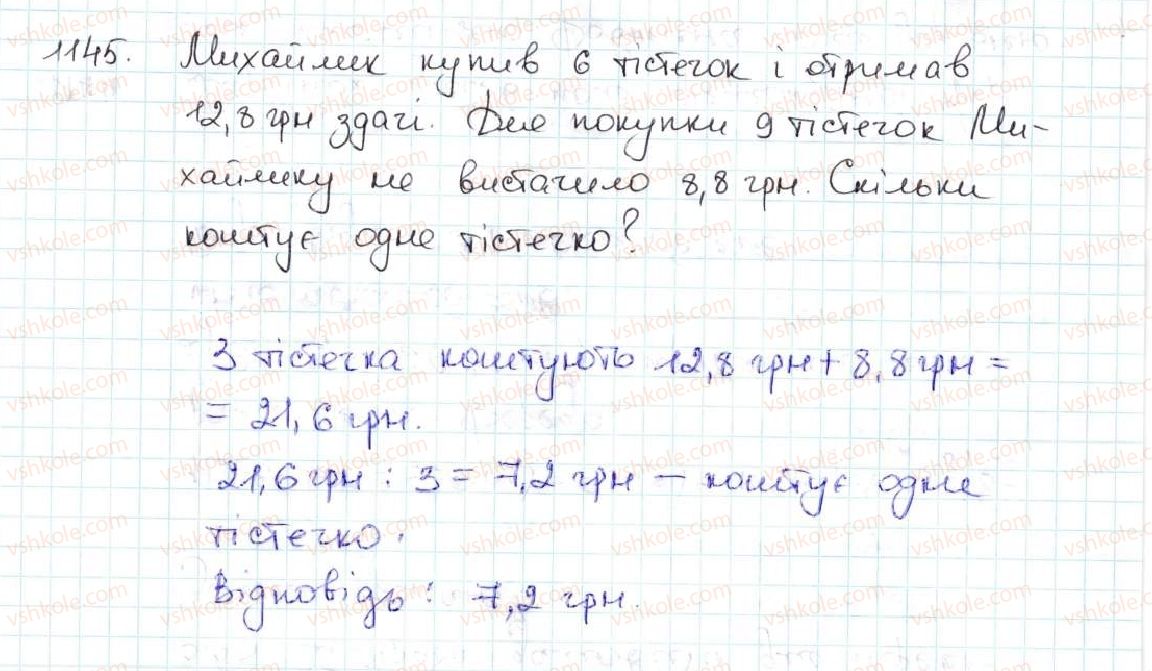 1145. Михайлик купив 6 тістечок і отримав
12,8 грн здачі. Для покупки 9 тістечок Ми-
хайлику не вистачило 8,8 грн. Скільки
коштує одне тістечко?
3 тістечка коштують 12,8 грн + 8,8 грн =
= 21,6 грн.
21,6 грн : 3 = 7,2 грн – коштує одне
тістечко.
Відповідь: 7,2 грн.